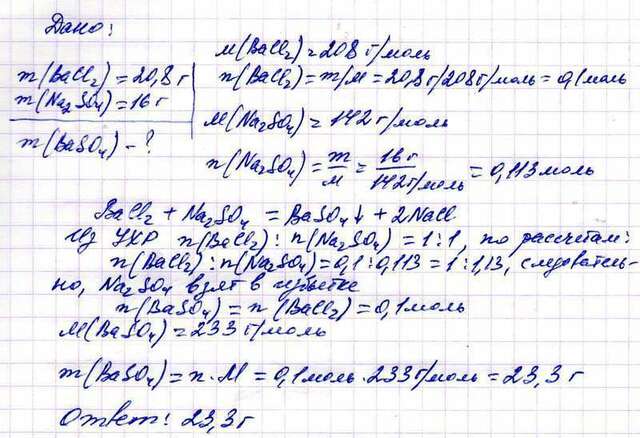 Дано:
m(BaCl₂)=20,8 г
m(Na₂SO₄)=16 г
m(BaSO₄)-?
M(BaCl₂)=208 г/моль
n(BaCl₂)=m/M=20,8 г/208 г/моль=0,1 моль
M(Na₂SO₄)=142 г/моль
n(Na₂SO₄)=m/M=16 г/142 г/моль=0,113 моль
BaCl₂ + Na₂SO₄ = BaSO₄↓ + 2NaCl
Из УХР n(BaCl₂) : n(Na₂SO₄) = 1:1, по рассчетам:
n(BaCl₂):n(Na₂SO₄)=0,1:0,113=1:1,13, следователь-
но, Na₂SO₄ взят в избытке
n(BaSO₄)=n(BaCl₂)=0,1 моль
M(BaSO₄)=233 г/моль
m(BaSO₄)=n·M=0,1 моль·233 г/моль=23,3 г
Ответ: 23,3 г